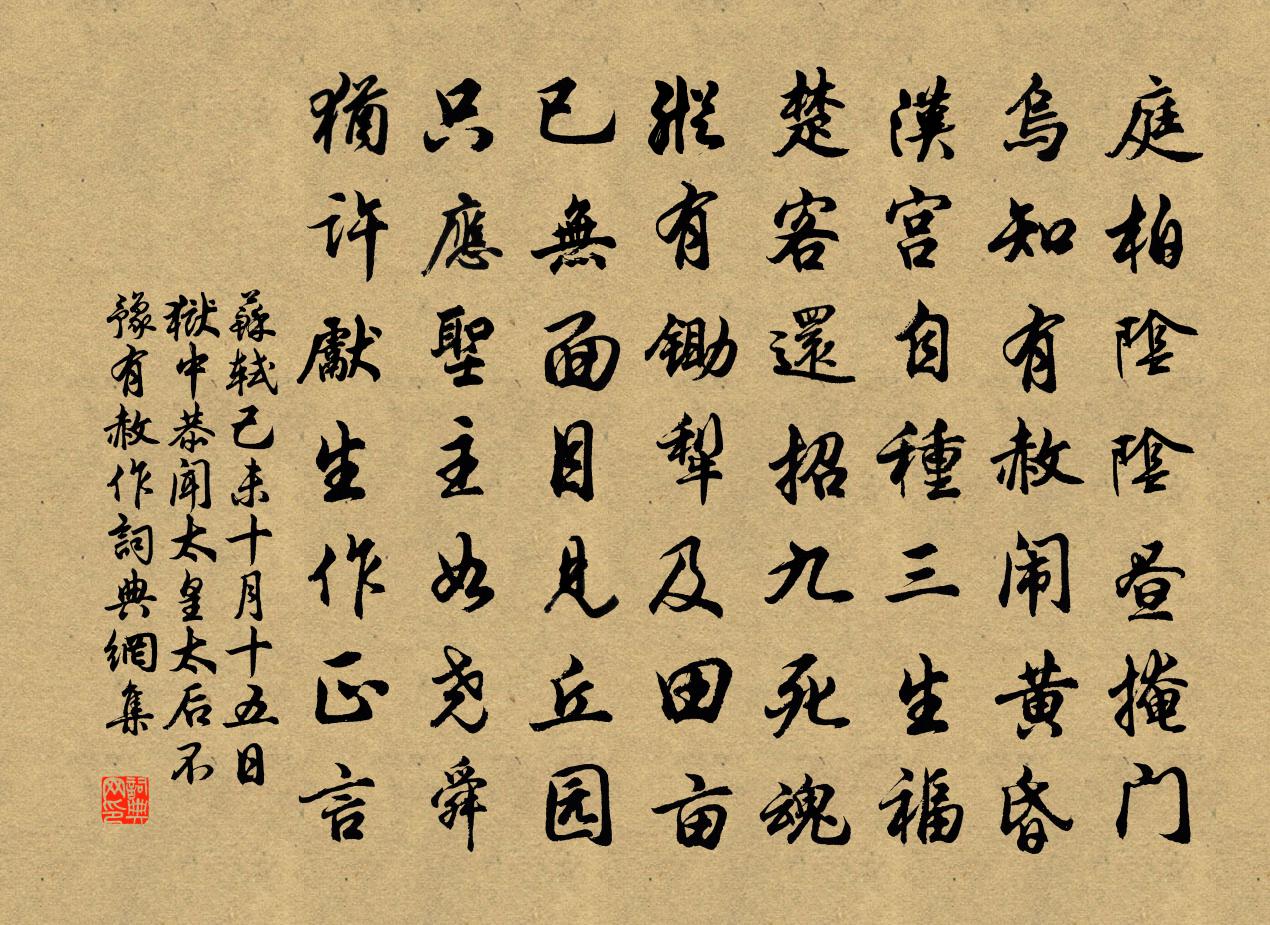 庭柏陰陰昼掩門
烏知有赦闹黄昏
漢宮自種三生福
楚客還招九死魂
縱有鋤犁及田亩
已無面目見丘园
只應聖主如尧舜
猶許獻生作正言
蘇軾己未十月十五日
獄中恭闻太皇太后不
豫有赦作詞典網集
詞典
网印